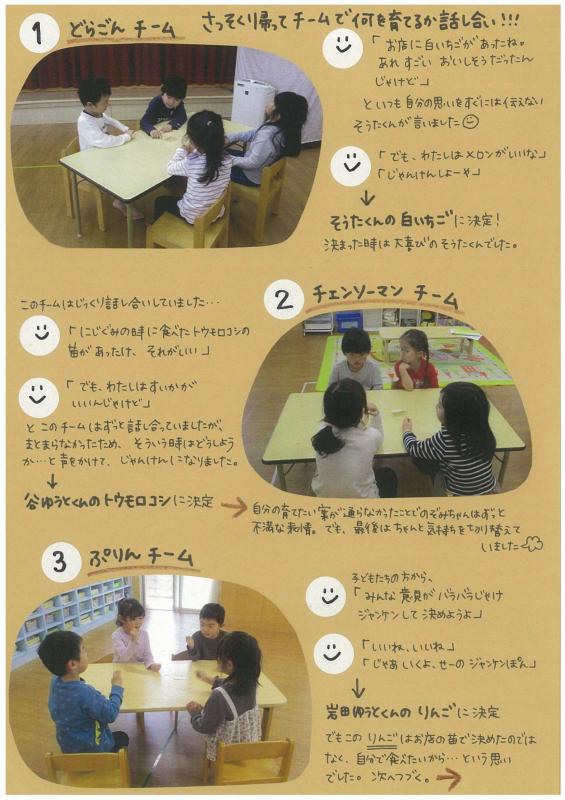 さっそく帰ってチームで何を育てるか話し合い!!!
1 どらごん チーム
「お店に白いちごがあったね。
あれ すごい おいしそうだったん
じゃけど」
と いつも自分の思いをすぐには伝えない
そうたくんが言いました
「でも、わたしはメロンがいいな」
「じゃんけんしよーや」
↓
そうたくんの 白いちごに決定!
決まった時は 大喜びのそうたくんでした。
2 チェンソーマン チーム
このチームはじっくり話し合いしていました・・・
「にじぐみの時に食べたトウモロコシの
苗があったけ、それがいい」
「でも、わたしはすいかが
いいんじゃけど」
と このチームはずっと話し合っていましたが、
まとまらなかったため、そういう時はどうしよう
か…と声をかけて、じゃんけんになりました。
↓
谷ゆうとくんのトウモロコシに決定 →
自分の育てたい案が通らなかったことでのぞみちゃんはずっと
不満な表情。でも、最後はちゃんと気持ちを切り替えて
いました
3 ぷりん チーム
子どもたちの方から、
「みんな 意見が バラバラじゃけ
ジャンケンして 決めようよ」
「いいね、いいね」
「じゃあ いくよ、せーの ジャンケンぽん」
↓
岩田ゆうとくんの りんごに決定
でもこの りんごはお店の苗で決めたのでは
なく、自分で食べたいから… という思い
でした。次へつづく。→